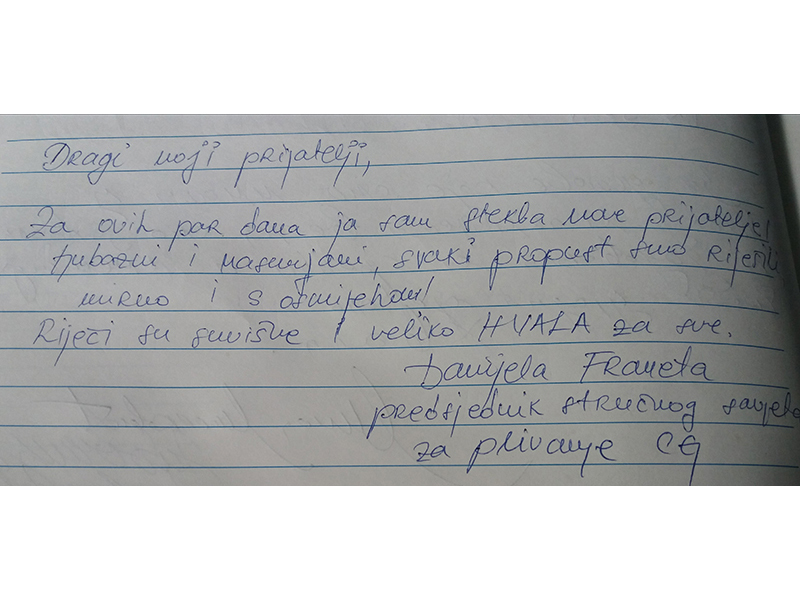 Dragi moji prijatelji,
Za ovih par dana ja sam stekla nove prijatelje!
Ljubazni i nasmijani, svaki propust smo riješili
mirno i s osmijehom!
Riječi su suvišne i veliko HVALA za sve.
Danijela Franeta
predsjednik stručnog savjeta
za plivanje CG